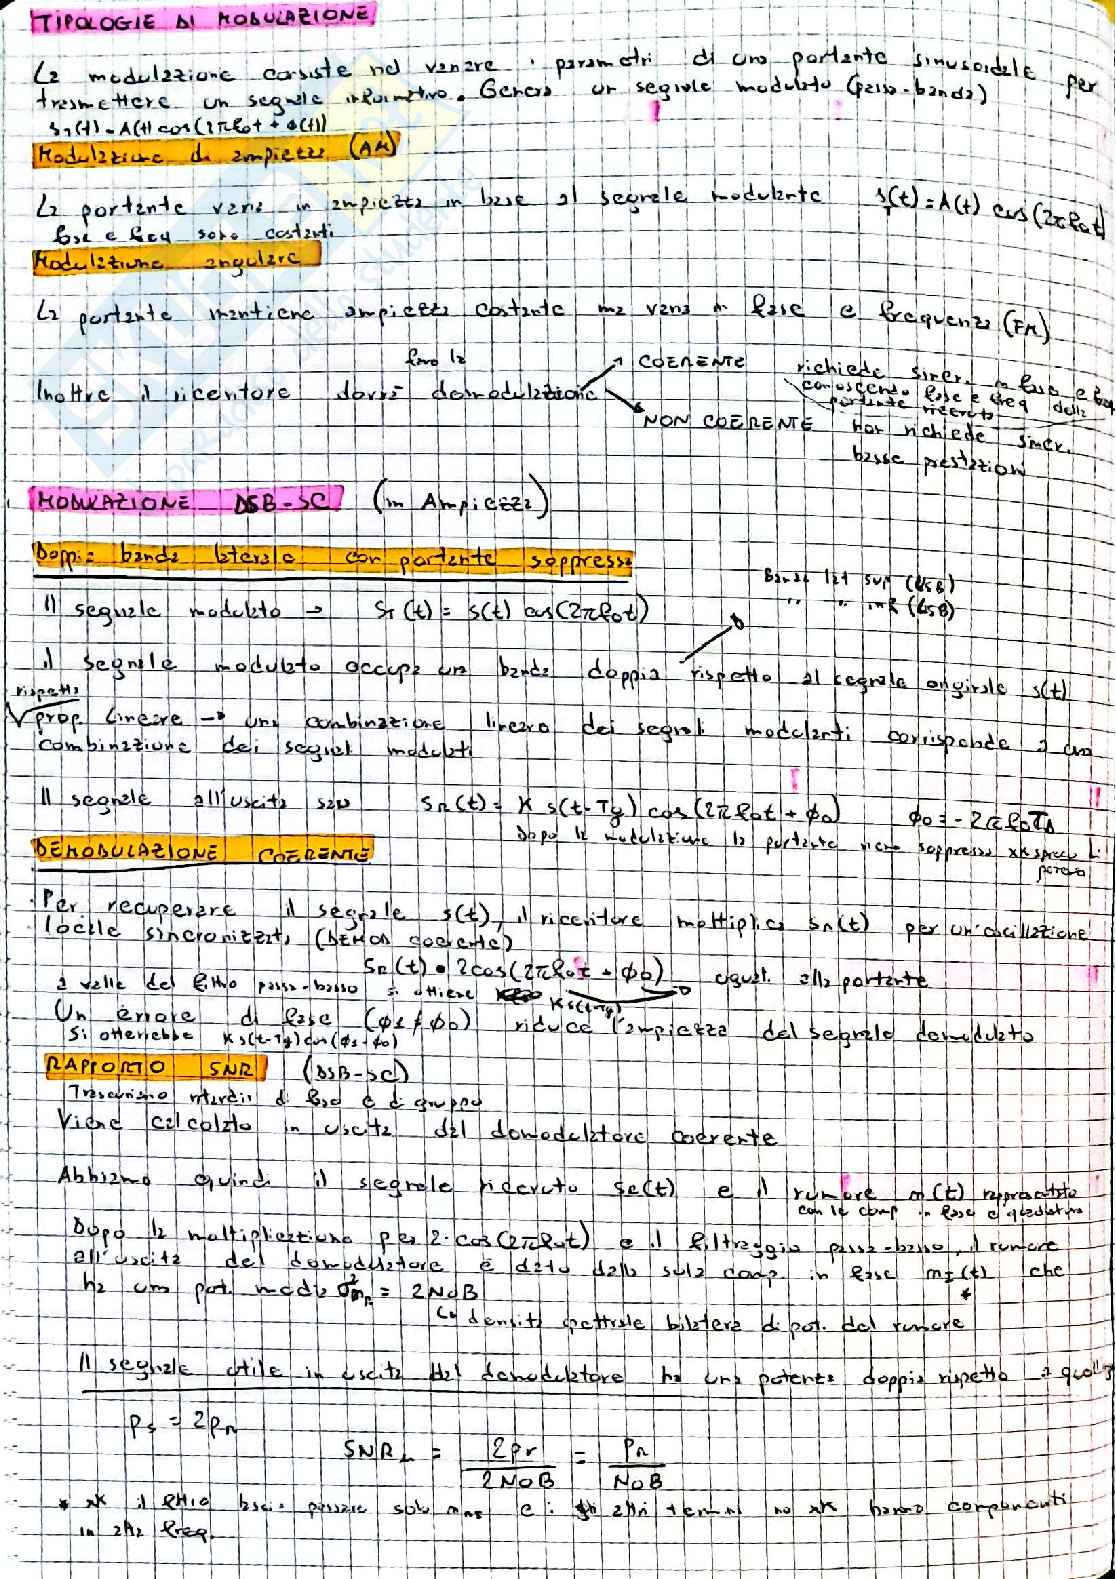 TIPOLOGIE DI MODULAZIONE
La modulazione consiste nel variare i parametri di una portante sinusoidale per
trasmettere un segnale informativo. Genera un segnale modulato (passa-banda)
s_T(t) = A(t) cos(2πf0t + φ(t))
Modulazione di ampiezza (AM)
La portante varia in ampiezza in base al segnale modulante s_T(t) = A(t) cos(2πf0t)
fase e freq sono costanti
Modulazione angolare
La portante mantiene ampiezza costante ma varia in fase e frequenza (FM)
fare la
Inoltre il ricevitore dovrà demodulazione
COERENTE richiede sincr. in fase e freq
conoscendo fase e freq della
portante ricevuta
NON COERENTE non richiede sincr.
basse prestazioni
MODULAZIONE DSB-SC (in Ampiezza)
Doppia banda laterale con portante soppressa
Banda lat sup (USB)
" " inf (LSB)
Il segnale modulato → s_T(t) = s(t) cos(2πf0t)
il segnale modulato occupa una banda doppia rispetto al segnale originale s(t)
rispetta
prop lineare → una combinazione lineare dei segnali modulanti corrisponde a una
combinazione dei segnali modulati
Il segnale all'uscita sarà s_R(t) = K s(t-Tg) cos(2πf0t + φ0) φ0 = -2πf0T
Dopo la modulazione la portante viene soppressa xk spreca
DEMODULAZIONE COERENTE
Per recuperare il segnale s(t), il ricevitore moltiplica s_R(t) per un'oscillazione
locale sincronizzata (DEMOD coerente)
s_R(t) • 2cos(2πf0t + φ0) uguali alla portante
a valle del filtro passa-basso si ottiene Ks(t-Tg)
Un errore di fase (φ1 ≠ φ0) riduce l'ampiezza del segnale demodulato
Si otterrebbe Ks(t-Tg)cos(φ1-φ0)
RAPPORTO SNR (DSB-SC)
Trascuriamo ritardi di fase e di gruppo
Viene calcolato in uscita dal demodulatore coerente
Abbiamo quindi il segnale ricevuto (t) e il rumore n(t) rappresentato
con le comp in fase e quadratura
Dopo la moltiplicazione per 2·cos(2πf0t) e il filtraggio passa-basso, il rumore
all'uscita del demodulatore è dato dalla sola comp. in fase n_I(t) che
ha una pot. media σ² = 2N0B *
densità spettrale bilatera di pot. del rumore
Il segnale utile in uscita dal demodulatore ha una potenza doppia rispetto a quella
Ps = 2Pr
SNR_L = 2Pr / 2N0B = Pr / N0B
* xk il filtro lascia passare solo e gli altri termini no xk hanno componenti
in alta freq.